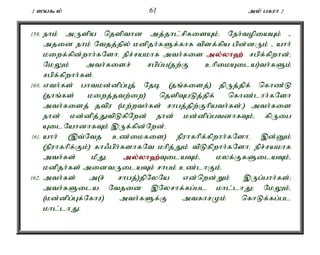 2 ஸயகூல்
61
அல் பகரா 2
159. நாம் அருளிய தெளிவான அத்தாட்சிகளையும், நேர்வழியையும் -
அதனை நாம் வேதத்தில் மனிதர்களுக்காக விளக்கிய பின்னரும் - யார்
மறைக்கின்றார்களோ, நிச்சயமாக அவர்களை அல்லாஹ் சபிக்கிறான்;
மேலும் அவர்களைச் சபிப்ப(தற்கு உரிமையுடைய)வர்களும்
சபிக்கிறார்கள்.
160. எவர்கள் பாவமன்னிப்புத் தேடி (தங்களைத்) திருத்திக் கொண்டு
(தாங்கள் மறைத்தவற்றை) தெளிவுபடுத்திக் கொண்டார்களோ
அவர்களைத் தவிர (மற்றவர்கள் சாபத்திற்குரியவர்கள்.) அவர்களை
நான் மன்னித்துவிடுகிறேன் நான் மன்னிப்பவனாகவும், கிருபை
யுடையோனாகவும் இருக்கின்றேன்.
161. யார் (இவ்வேத உண்மைகளை) நிராகரிக்கிறார்களோ, இன்னும்
(நிராகரிக்கும்) காஃபிர்களாகவே மரித்தும் விடுகிறார்களோ, நிச்சயமாக
அவர்கள் மீது, அல்லாஹ்வுடையவும், மலக்குகளுடையவும்,
மனிதர்கள் அனைவருடையவும் சாபம் உண்டாகும்.
162. அவர்கள் அ(ச் சாபத்)திலேயே என்றென்றும் இருப்பார்கள்;
அவர்களுடைய வேதனை இலேசாக்கப்பட மாட்டாது; மேலும்,
(மன்னிப்புக்கோர) அவர்களுக்கு அவகாசமும் கொடுக்கப்பட
மாட்டாது.